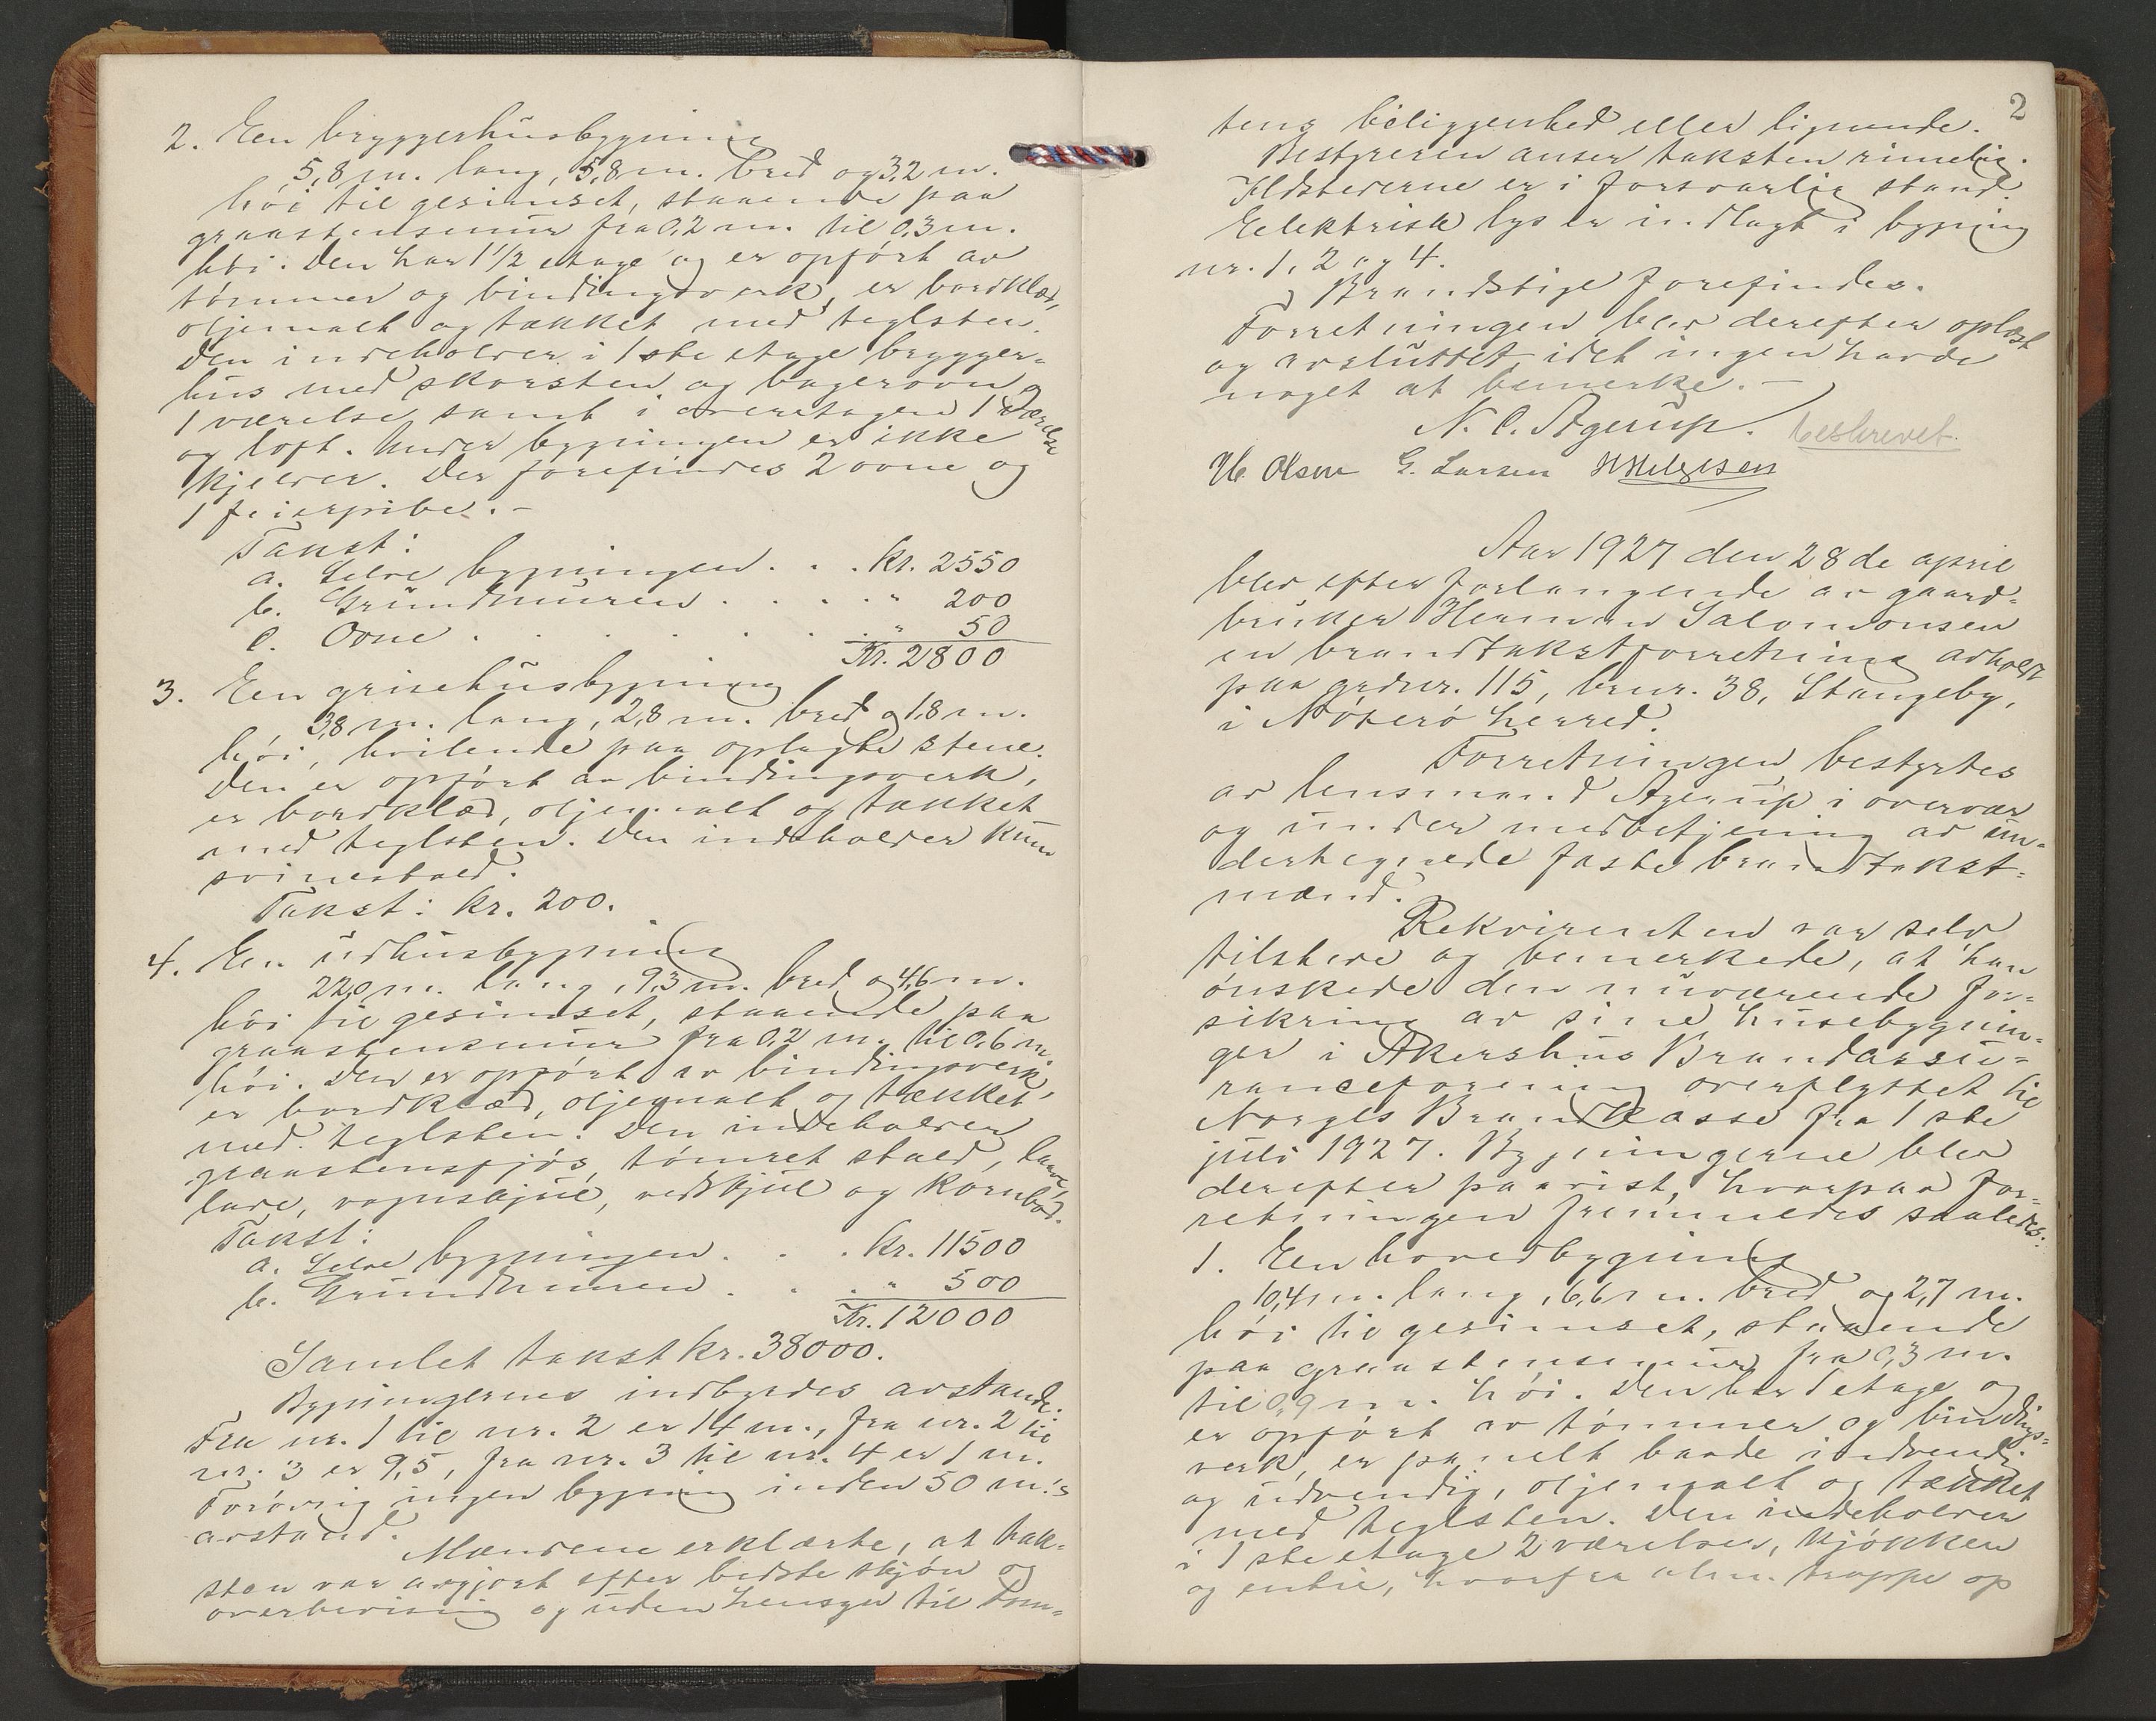 2. En bryggerhusbygning
5,8 m. lang, 5,8 m. bred og 3,2 m.
høi til gesimset, staaende paa
graastensmur fra 0,2 m. til 0,3 m.
høi. Den har 1 1/2 etage og er opført av
tømmer og bindingsverk, er bordklæd,
oljemalt og tækket med teglsten.
Den indeholder i 1ste etage brygger-
hus med skorsten og bagerovn og
1 værelse samt i overetagen 1 værelse
og loft. Under bygningen er ikke
kjelder. Der forefindes 2 ovne og
1 feierpibe. –
Takst:
a. Selve bygningen . . . kr. 2550
b. Grundmuren . . . . . " 200
c. Ovne . . . . . . . " 50
Kr. 2800
3. En grisehusbygning
3,8 m. lang, 2,8 m. bred og 1,8 m.
høi, hvilende paa oplagte stene.
Den er opført av bindingsverk,
er bordklæd, oljemalt og tækket
med teglsten. Den indeholder kun
svinestald.
Takst: kr. 200.
4. En udhusbygning
22,0 m. lang, 9,3 m. bred og 4,6 m.
høi til gesimset, staaende paa
graastensmur fra 0,2 m. til 0,6 m.
høi. Den er opført av bindingsverk,
er bordklæd, oljemalt og tækket
med teglsten. Den indeholder
graastensfjøs, tømret stald, laave,
lade, vognskjul, vedskjul og kornbod.
Takst:
a. Selve bygningen . . . kr. 11500
b. Grundmuren . . . " 500
Kr. 12000
Samlet takst kr. 38000.
Bygningernes indbyrdes avstand:
Fra nr. 1 til nr. 2 er 14 m., fra nr. 2 til
nr. 3 er 9,5, fra nr. 3 til nr. 4 er 1 m.
Forøvrig ingen bygning inden 50 m.'s
avstand.
Mændene erklærte, at tak-
sten var avgjort efter bedste skjøn og
overbevisning og uden hensyn til tom-
2
tens beliggenhed eller lignende.
Bestyreren anser taksten rimelig.
Ildstederne er i forsvarlig stand.
Elektrisk lys er indlagt i bygning
nr. 1, 2 og 4.
Brandstige forefindes.
Forretningen blev derefter oplæst
og avsluttet, idet ingen havde
noget at bemerke. –
N. C. Agerup. beskrevet.
Olsen G. Larsen H Helgesen
Aar 1927 den 28de april
blev efter forlangende av gaard-
bruker Herman Salomonsen
en brandtakstforretning avholdt
paa grdnr. 115, brnr. 38, Stangeby,
i Nøterø herred.
Forretningen bestyrtes
av lensmand Agerup i overvær
og under medbetjening av un-
dertegnede faste brandtakst-
mænd.
Rekvirenten var selv
tilstede og bemerkede, at han
ønskede den nuværende for-
sikring av sine husebygnin-
ger i Akershus Brandassu-
ranceforening overflyttet til
Norges Brandkasse fra 1ste
juli 1927. Bygningerne blev
derefter paavist, hvorpaa for-
retningen fremmedes saaledes:
1. En hovedbygning
10,4 m. lang, 6,6 m. bred og 2,7 m.
høi til gesimset, staaende
paa graastensmur fra 0,3 m.
til 0,9 m. høi. Den har 1 etage og
er opført av tømmer og bindings-
verk, er panelt baade indvendig
og udvendig, oljemalt og tækket
med teglsten. Den indeholder
i 1ste etage 2 værelser, kjøkken
og entre, hvorfra alm. trappe op